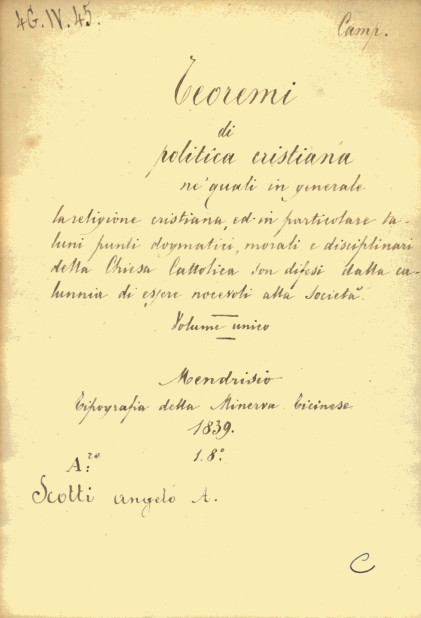 4G. IV. 45.
Camp.
Teoremi
di
politica cristiana
ne' quali in generale
la religione cristiana, ed in particolare ta-
luni punti dogmatici, morali e disciplinari
della Chiesa Cattolica son difesi dalla ca-
lunnia di essere nocevoli alla Società.
Volume unico
Mendrisio
Tipografia della Minerva Ticinese
1839.
1. 8º.
A:re
Scotti Angelo A.
C